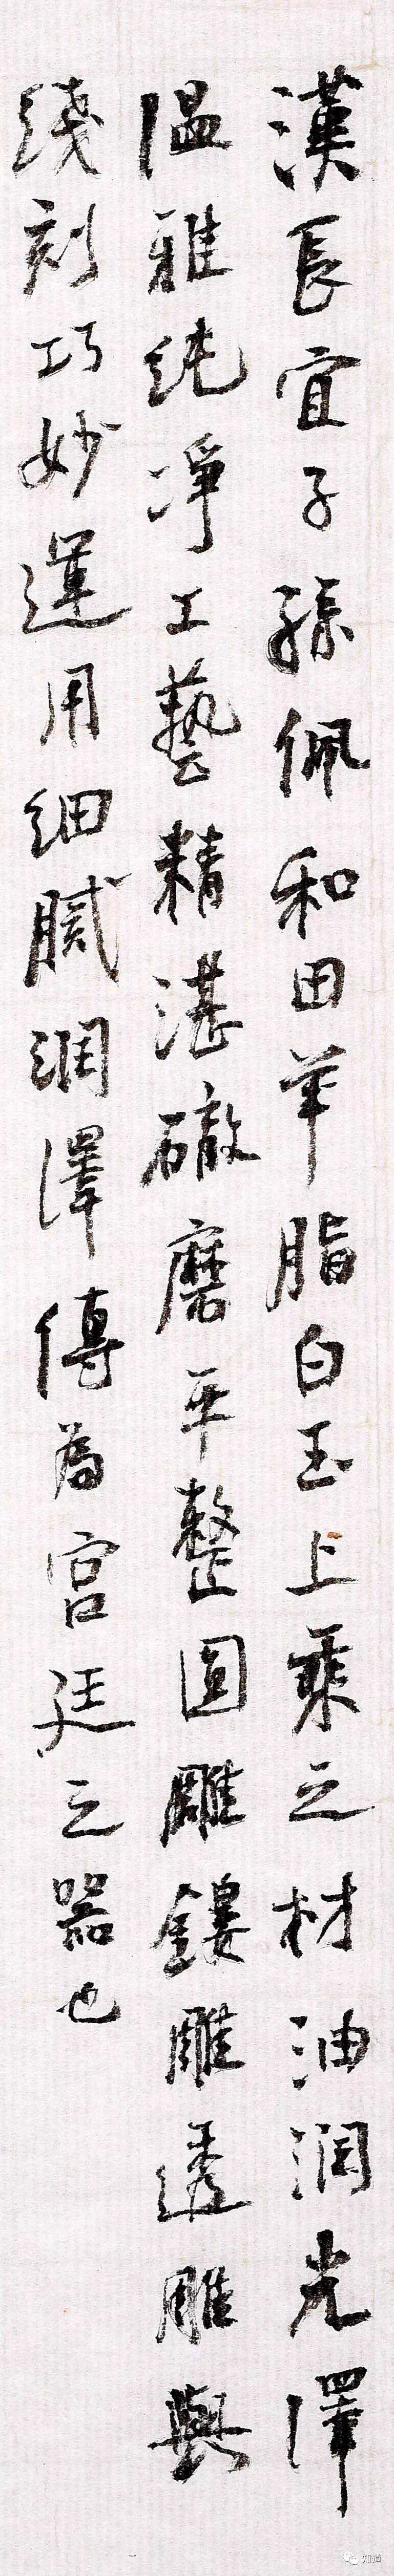 漢長宜子孫佩和田羊脂白玉上乘之材油润光澤
温雅纯凈工藝精湛磝磨平整圓雕鏤雕透雕與
綫刻巧妙運用细膩润澤傳為宫廷之器也
知道